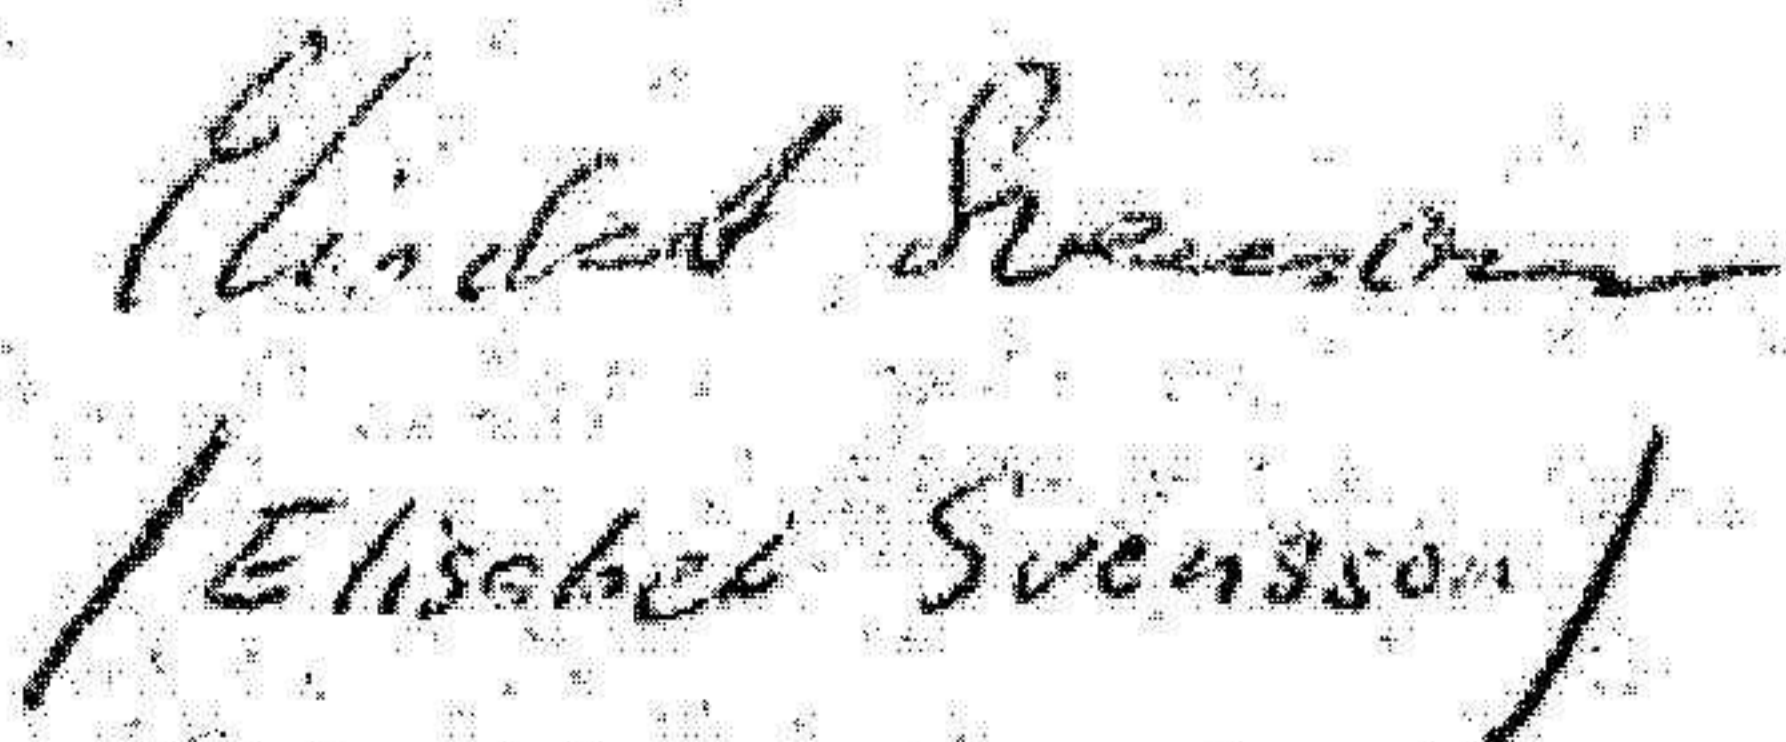 Elisabet Svensson
(Elisabet Svensson)